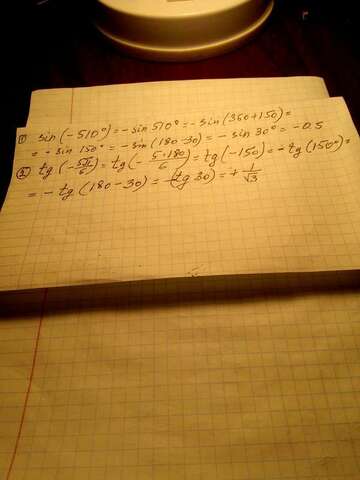 1) sin(-510°) = -sin 510° = -sin(360+150) =
= -sin 150° = -sin(180-30) = -sin 30° = -0.5
2) tg(-5π/6) = tg(-5·180/6) = tg(-150) = -tg(150°) =
= -tg(180-30) = -(-tg 30) = +1/√3